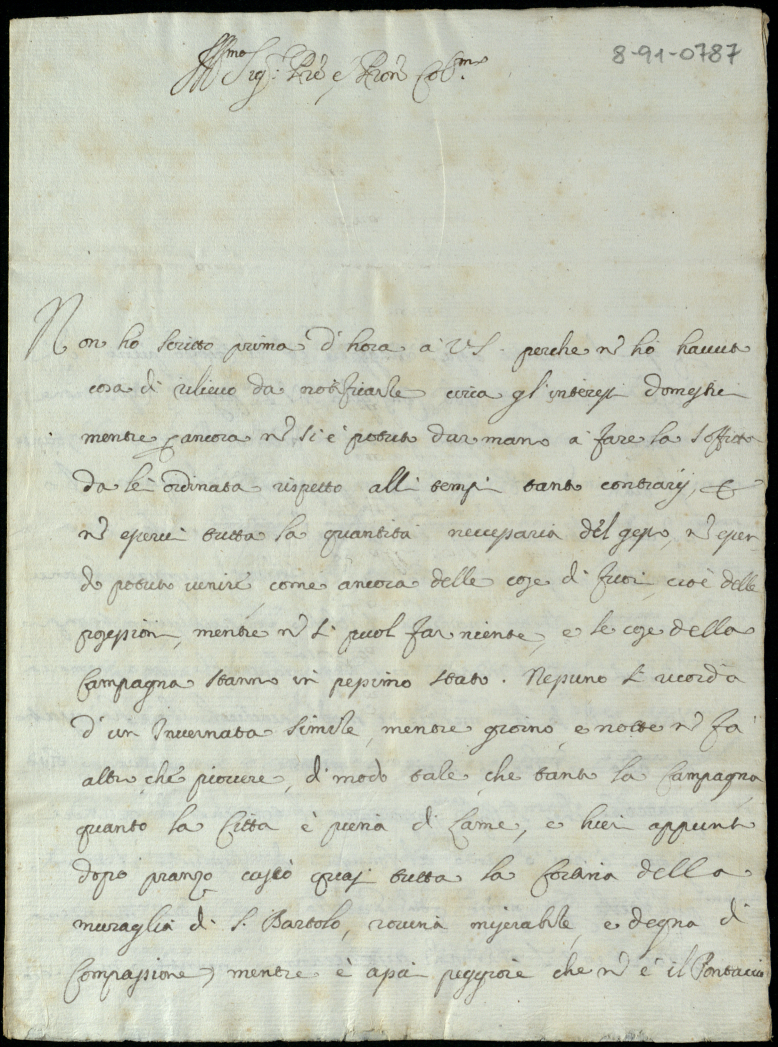 8-91-0787
Ill.mo Sig.r Prē e Pron Col.mo
Non ho scritto prima d'hora a VS. perche nō ho havuto
cosa di rilievo da notificarle circa gl'interessi domestici
mentre ancora nō si è potuto dar mano a fare la soffitta
da lei ordinata rispetto alli tempi tanto contrarij, &
nō esservi tutta la quantità necessaria del gesso, nō essen-
do potuto venire, come ancora delle cose di fuori, cioè delle
possessioni, mentre nō si puol far niente, e le cose della
Campagna stanno in pessimo stato. Nessuno si ricorda
d'un Invernata simile, mentre giorno, e notte nō fa
altro, che piovere, di modo tale, che tanto la Campagna,
quanto la Città è piena di Lame, e hieri appunto
dopo pranzo cascò quasi tutta la Cortina della
muraglia di S. Bartolo, rovina miserabile, e degna di
Compassione, mentre è assai peggiore che nō è il Pontaccio